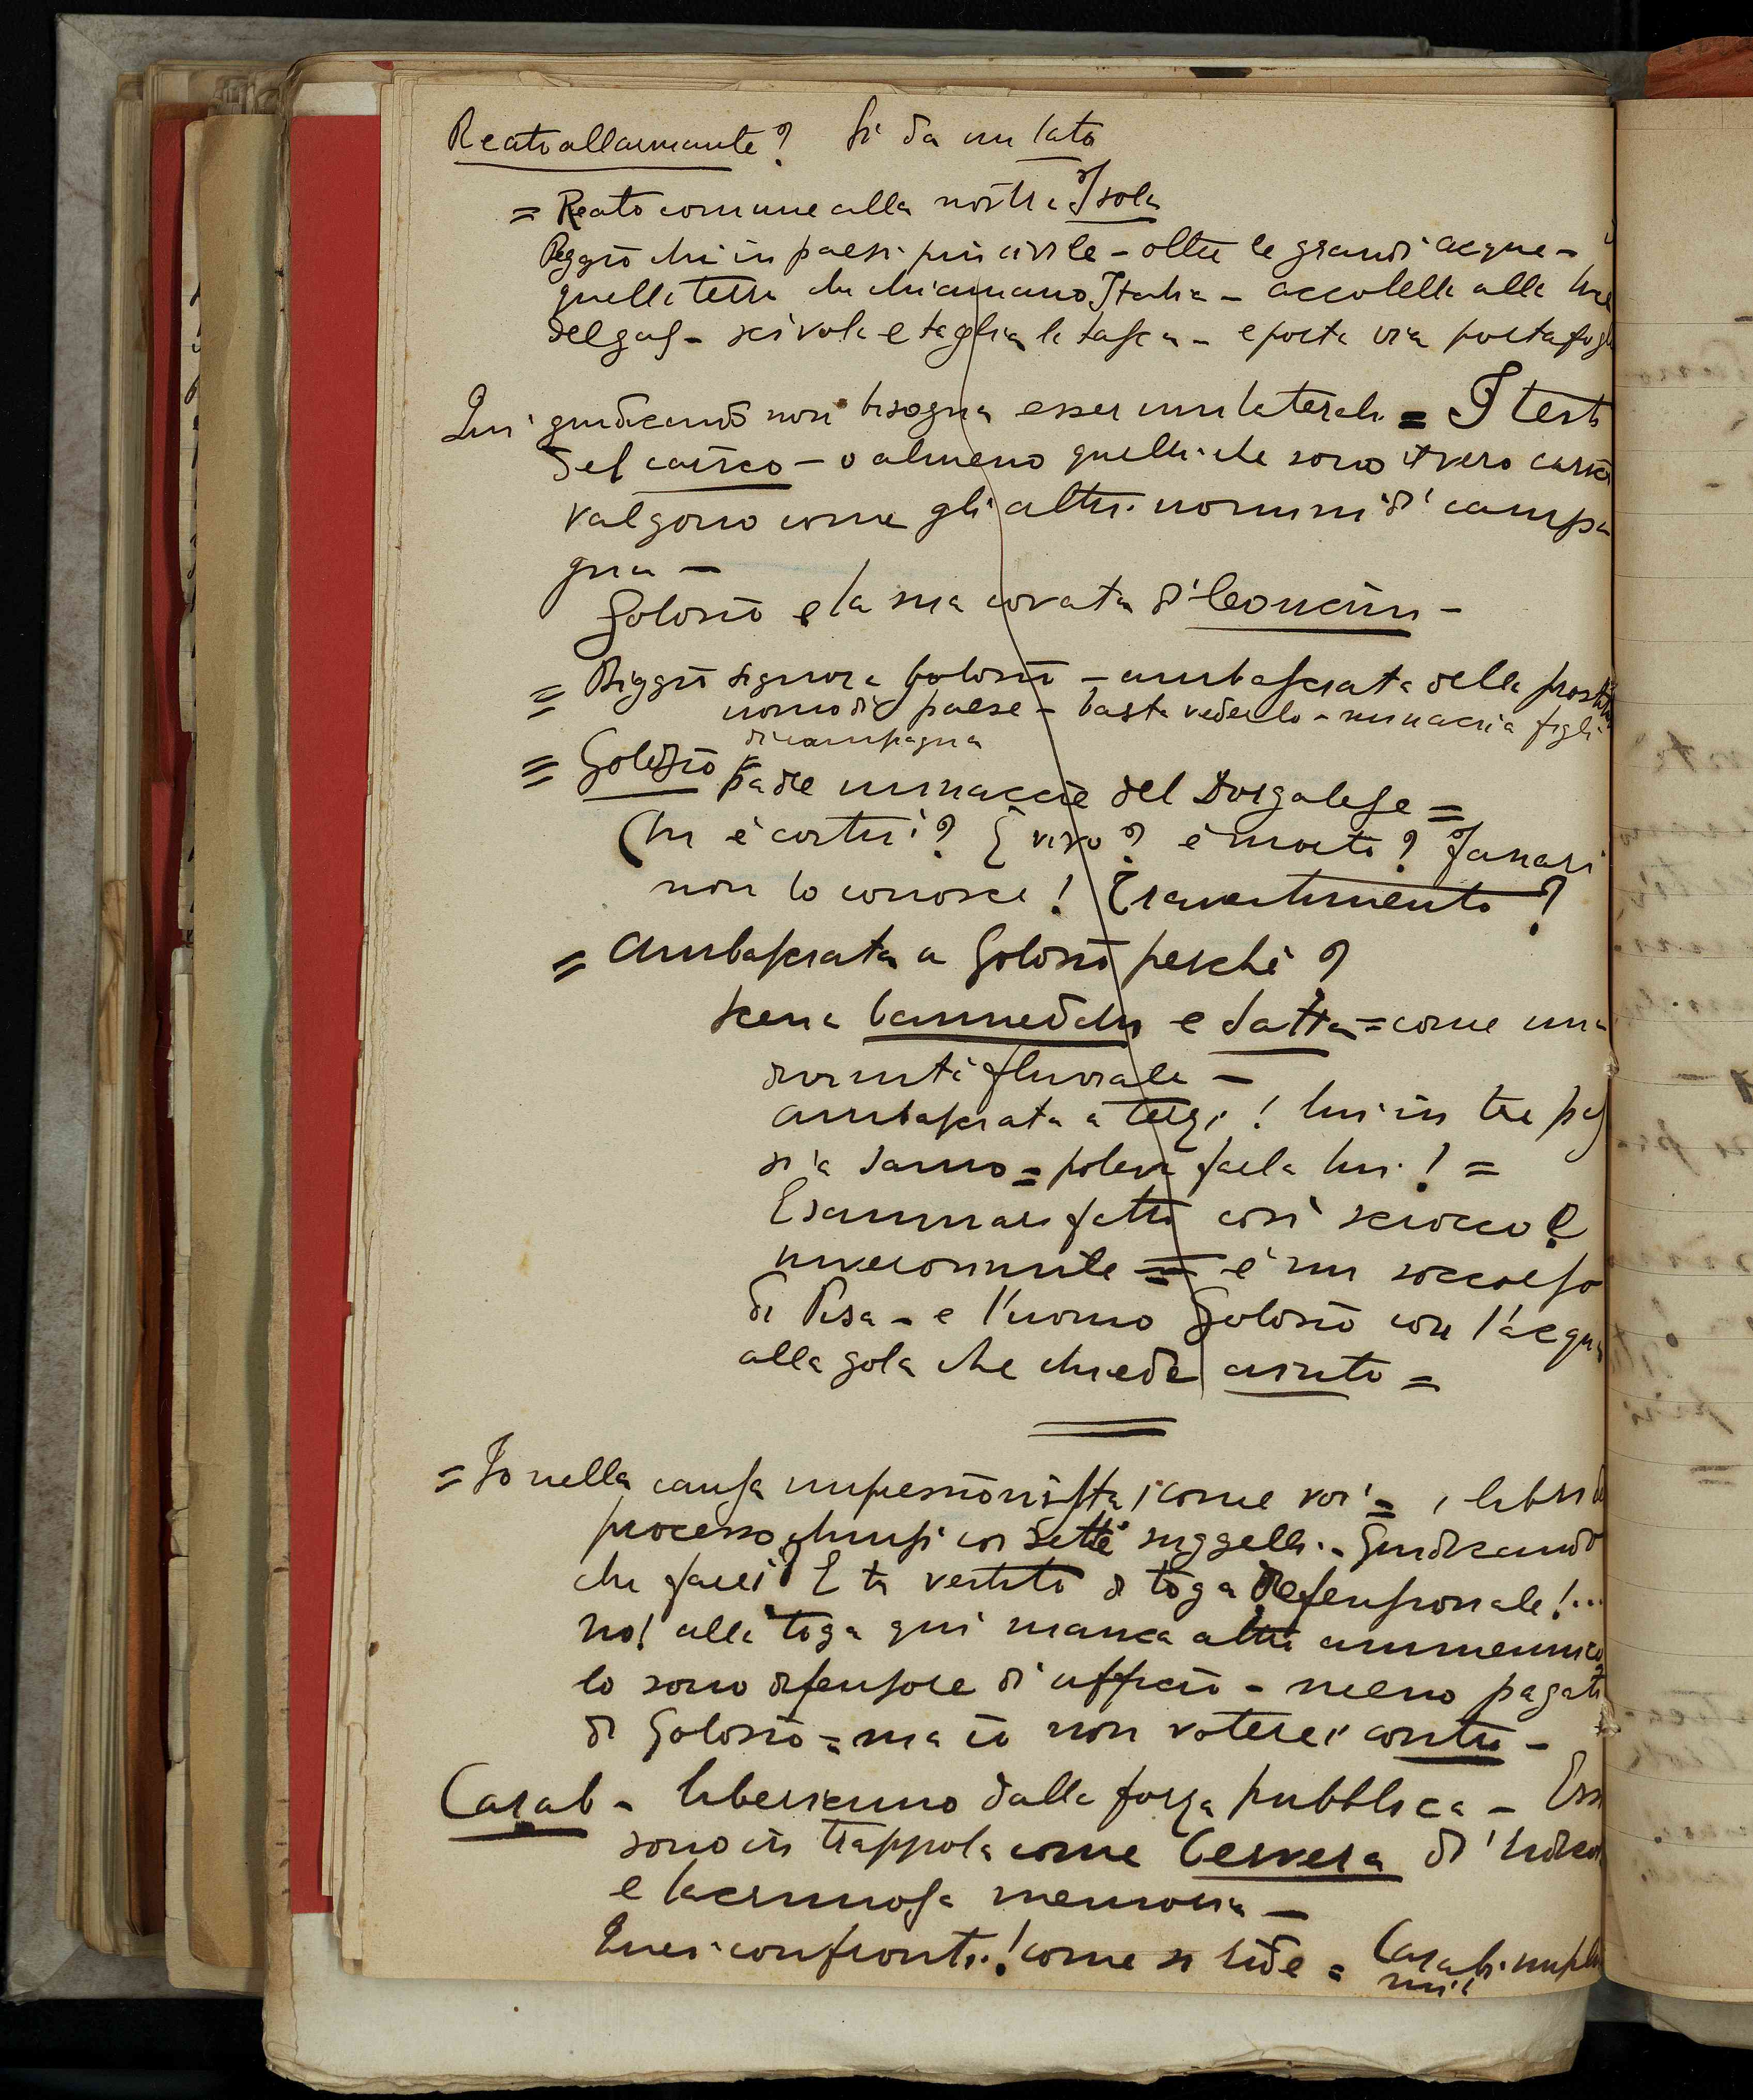 Reato allarmante? Si da un lato
= Reato comune alla nostra Isola
Peggio chi in paesi più civile - oltre le grandi acque -
quella terra che chiamano Italia - accoltella alla luce
del gas - scivola e taglia la tasca - e porta via portafogli
Qui giudicando non bisogna esser unilaterali = I testi
del carico - o almeno quelli che sono vero carico
valgono come gli altri uomini di campa
gna -
Golosio e la sua covata di leoncini -
= Piggio signora Golosio - ambasciata della
uomo di paese - basta vederlo - minaccia figli
di campagna
= Golosio padre minaccie del Dorgalese =
Chi è costui? È vivo? è morto? Fanari
non lo conosce! Travestimento?
= Ambasciata a Golosio perchè?
scena e Satta = come una
divinità fluviale -
ambasciata a terzi! lui in tre
si a = poteva farla lui! =
Esaminare fatto così sciocco?
inverosimile = è un soccorso
di Pisa - e l'uomo Golosio con l'acqua
alla gola che chiede aiuto =
= Io nella causa impressionista come voi = i libri di
processo chiusi con sette suggelli - Giudicando
che farei? E tu vestito di toga defensionale!...
no! alla toga qui manca altro
lo sono difensore di ufficio - meno pagato
di Golosio = ma io non voterei contro -
Carab - liberiamo dalla forza pubblica - Essi
sono in trappola come Cervera di
e lacrimosa memoria -
Quei confronti! come si ride = Carab.